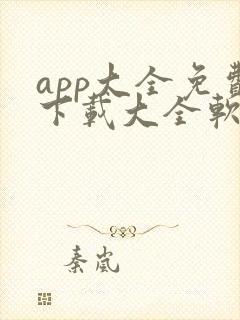 app大全免費
下載大全軟
秦嵐